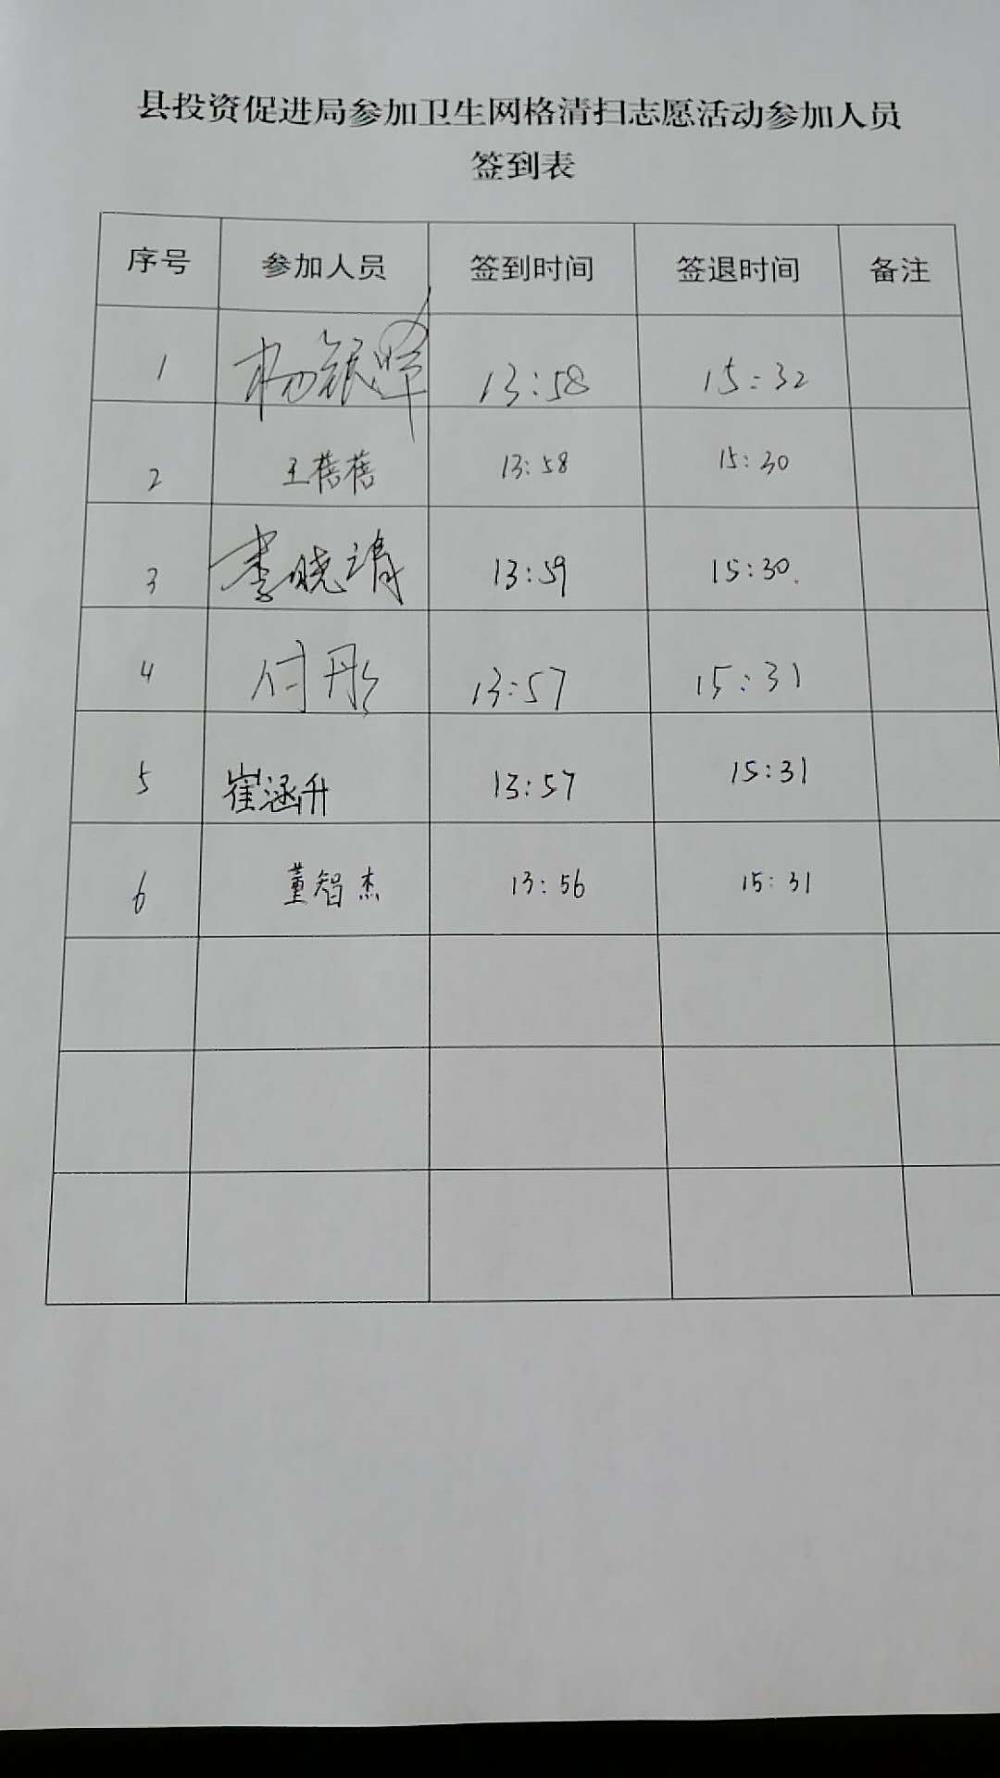 县投资促进局参加卫生网格清扫志愿活动参加人员
签到表
序号 参加人员 签到时间 签退时间 备注
1 杨银 13:58 15:32
2 王蓓蓓 13:58 15:30
3 李晓靖 13:59 15:30.
4 付彤 13:57 15:31
5 崔涵升 13:57 15:31
6 董智杰 13:56 15:31